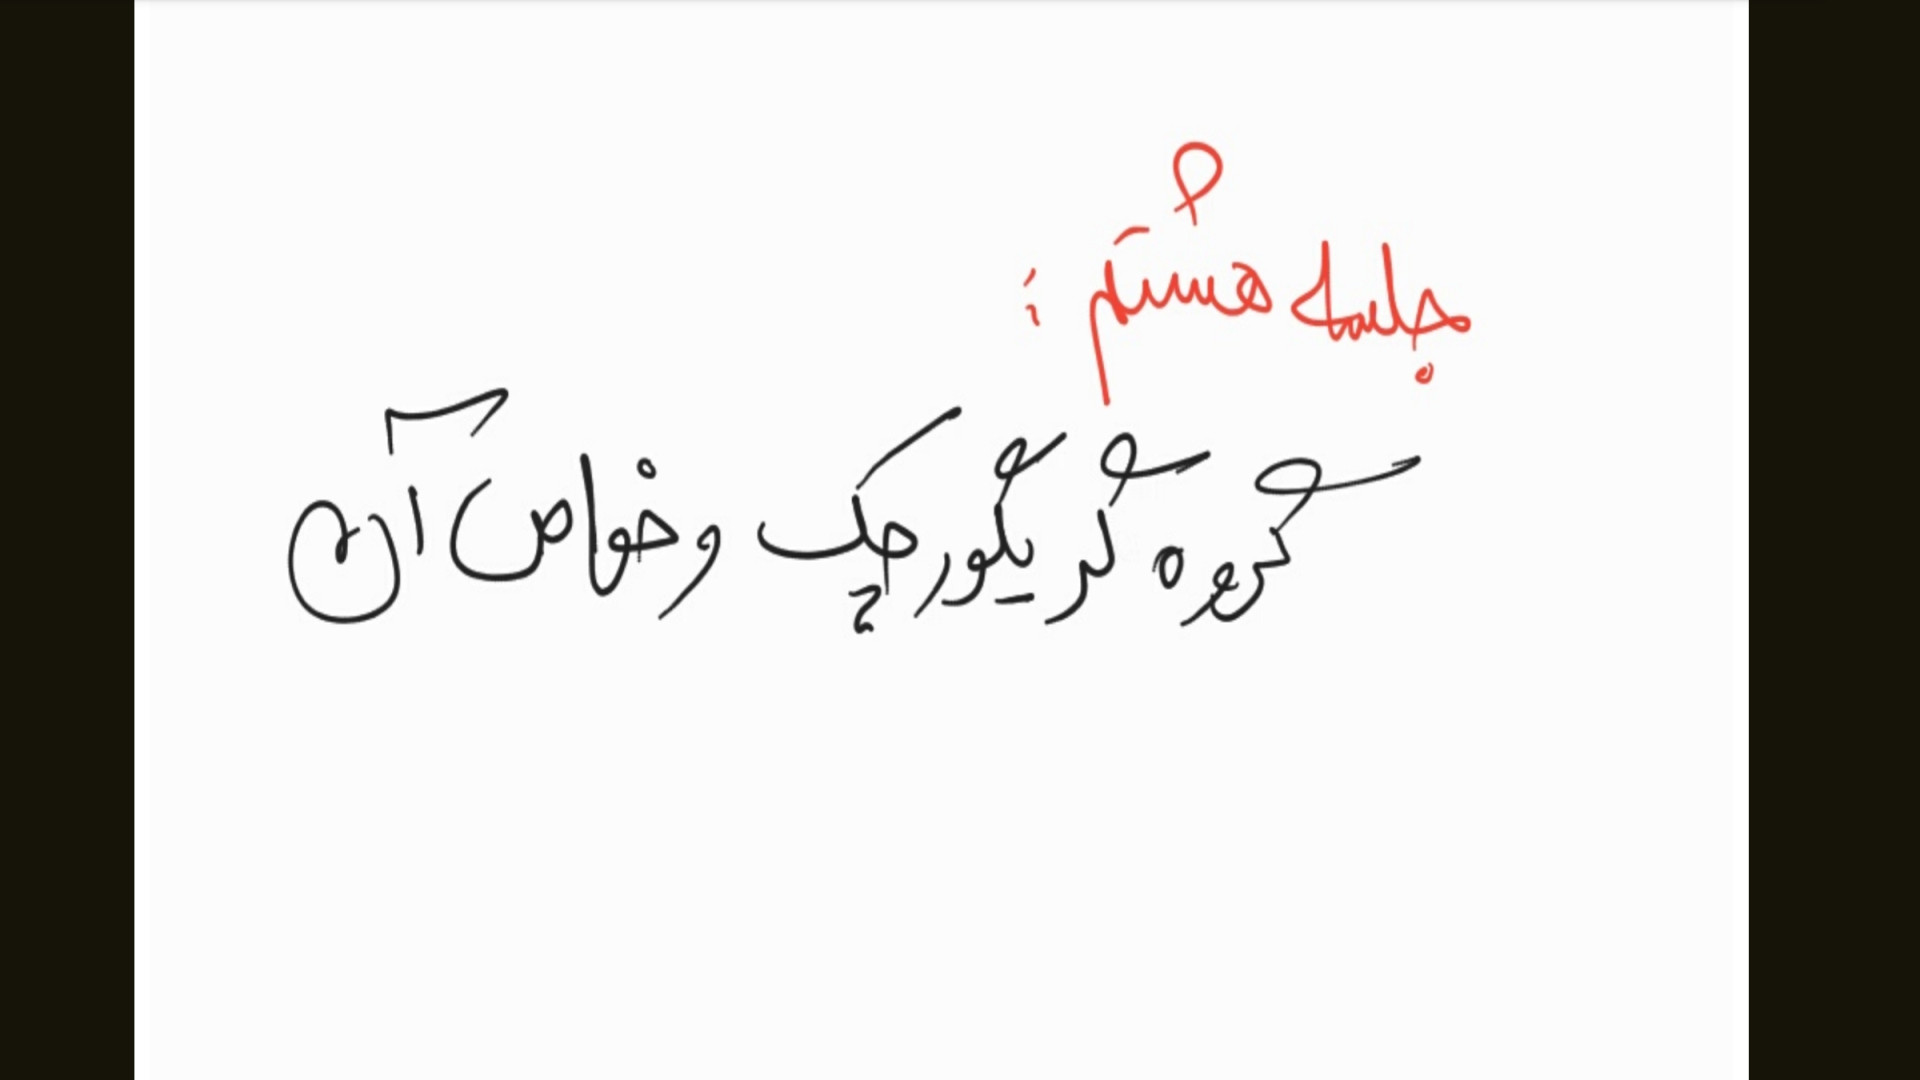 جلسه هشتم :
گروه گریگورچک و خواص آن